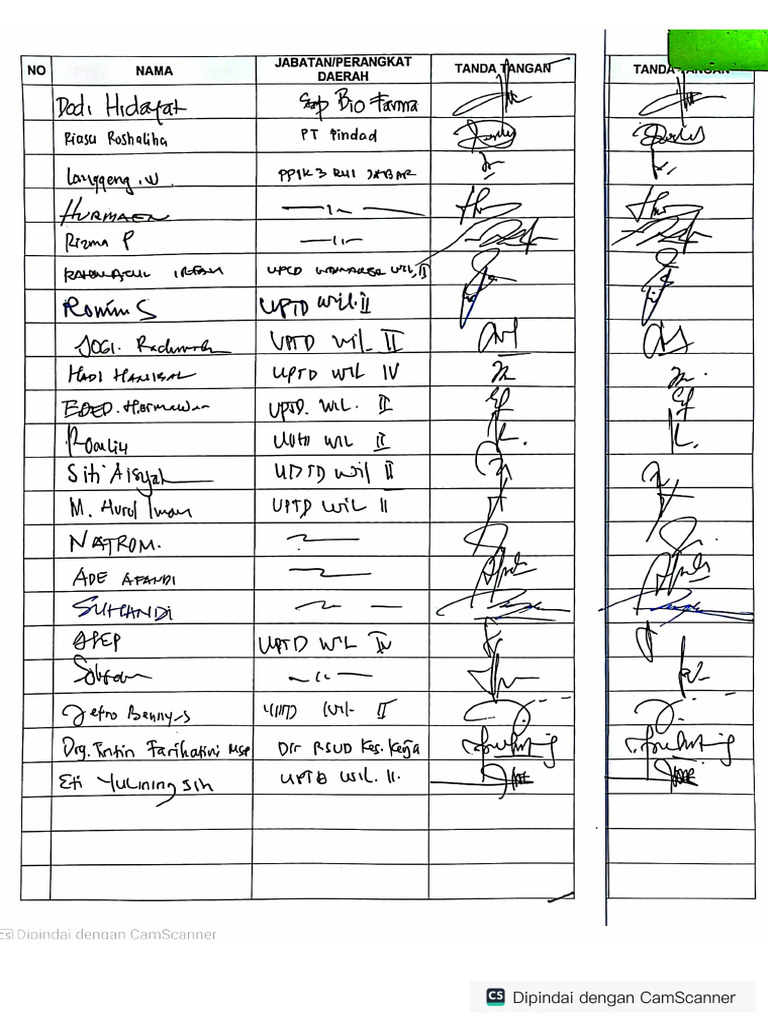 NO NAMA JABATAN/PERANGKAT DAERAH TANDA TANGAN TANDA TANGAN
Dodi Hidayat Bio Farma
Riasa Roshaliha PT Pindad
Langgeng . W. PPIK3 RHI JABAR
— " —
Rizma P — " —
UPTD WIL. II
Romim S UPTD Wil. II
UPTD WIL II
HADI HANIBAL UPTD WIL IV
EDED. Hermawan UPTD. WIL. II
UPTD WIL II
Siti Aisyah UPTD Wil II
M. Nurul Iman UPTD WIL II
NATROM.
ADE AFANDI
SUHANDI
ASEP UPTD WIL IV
Sobran — " —
Jefro Benny-S UPTD Wil. II
Drg. Tintin Farihatini MSP Dir RSUD Kes. Kerja
Eti Yulining sih UPTD WIL. II.
CS Dipindai dengan CamScanner
CS Dipindai dengan CamScanner